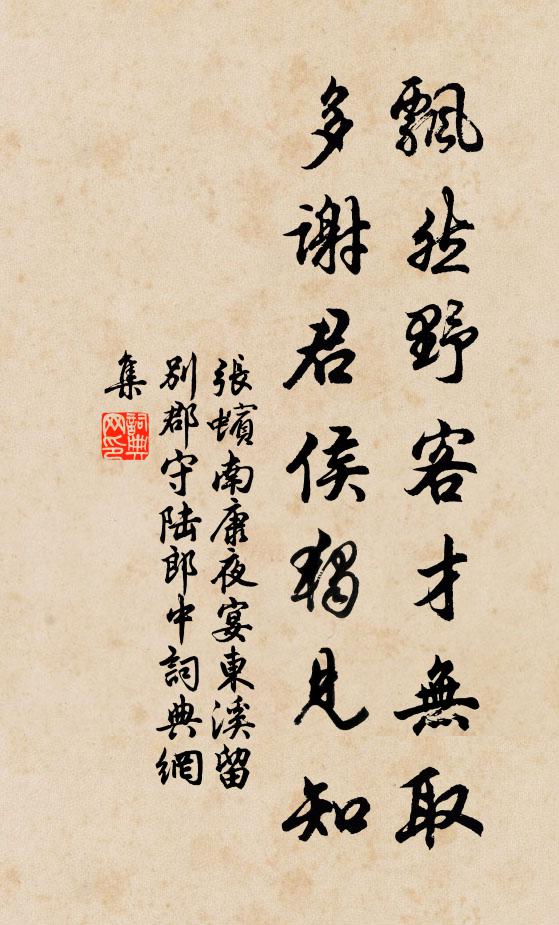 飄然野客才無取
多謝君侯獨見知
張蠙南康夜宴東溪留
別郡守陆郎中詞典網
集
詞典
网印